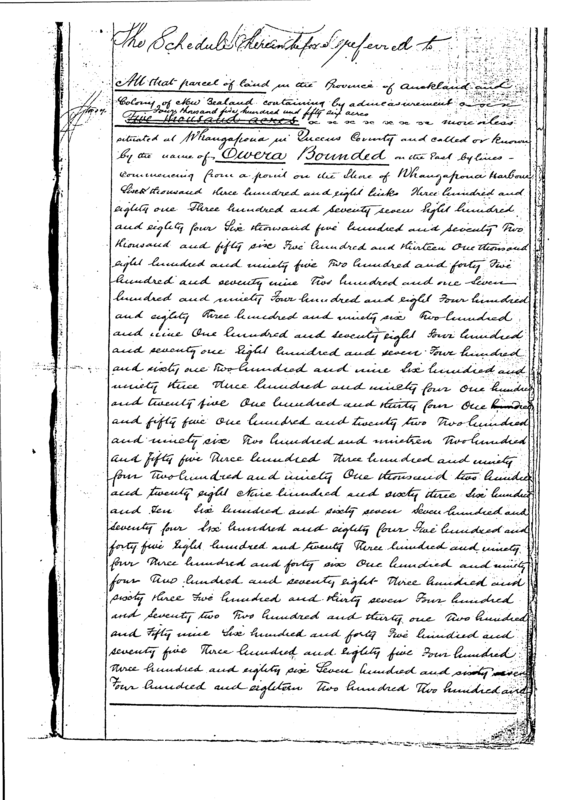 The Schedule hereinbefore referred to
All that parcel of land in the Province of Auckland and
Colony of New Zealand containing by admeasurement
Four thousand five hundred and fifty six acres
Five thousand acres more or less
situated at Whangapoua in Queens County and called or known
by the name of Owera Bounded on the East by lines -
commencing from a point on the Shore of Whangapoua Harbour
thousand three hundred and eight links Three hundred and
eighty one Three hundred and seventy seven Eight hundred
and eighty four Six thousand five hundred and seventy Two
thousand and fifty six Five hundred and thirteen One thousand
eight hundred and ninety five Two hundred and forty Five
hundred and seventy nine Two hundred and one Seven
hundred and ninety Four hundred and eight Four hundred
and eighty Three hundred and ninety six Two hundred
and nine One hundred and seventy eight Four hundred
and seventy one Eight hundred and seven Four hundred
and sixty one Two hundred and nine Six hundred and
ninety three Three hundred and ninety four One hundred
and twenty five One hundred and thirty four One hundred
and fifty five One hundred and twenty two Two hundred
and ninety six Two hundred and nineteen Two hundred
and fifty five Three hundred Three hundred and ninety
four Two hundred and ninety One thousand two hundred
and twenty eight Nine hundred and sixty three Six hundred
and Ten Six hundred and sixty seven Seven hundred and
seventy four Six hundred and eighty four Five hundred and
forty five Eight hundred and twenty Three hundred and ninety
four Three hundred and forty six One hundred and ninety
four Two hundred and seventy eight Three hundred and
sixty three Five hundred and thirty seven Four hundred
and seventy two Two hundred and thirty one Two hundred
and Fifty nine Six hundred and forty Five hundred and
seventy five Three hundred and eighty five Four hundred
Three hundred and eighty six Seven hundred and sixty seven
Four hundred and eighteen Two hundred Two hundred and